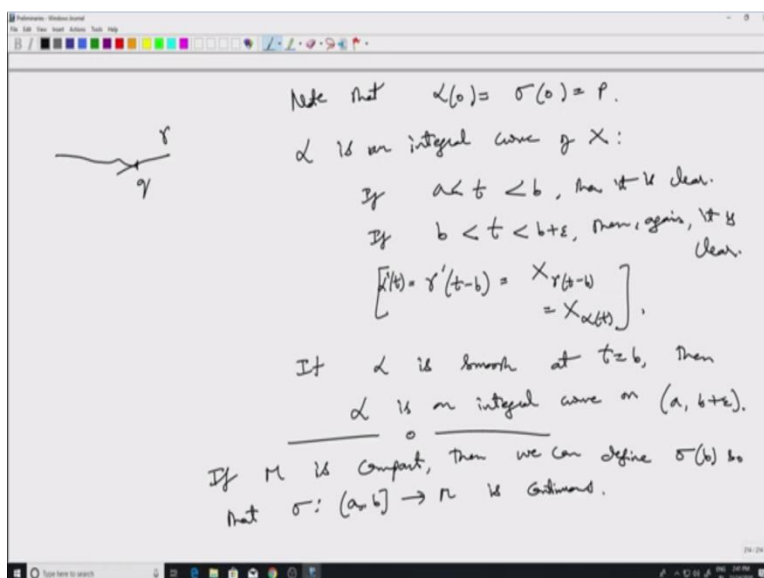 Preliminaries - Windows Journal
File Edit View Insert Actions Tools Help
Note that α(0) = σ(0) = p.
γ
q
α is an integral curve of X :
If a < t < b, then it is clear.
If b < t < b+ε, then, again, it is
clear.
[α'(t) = γ'(t-b) = X_γ(t-b)
= X_α(t)].
If α is smooth at t=b, then
α is an integral curve on (a, b+ε).
If M is compact, then we can define σ(b) so
that σ : (a, b] → M is continuous.
24/24
Type here to search
ENG 2:47 PM